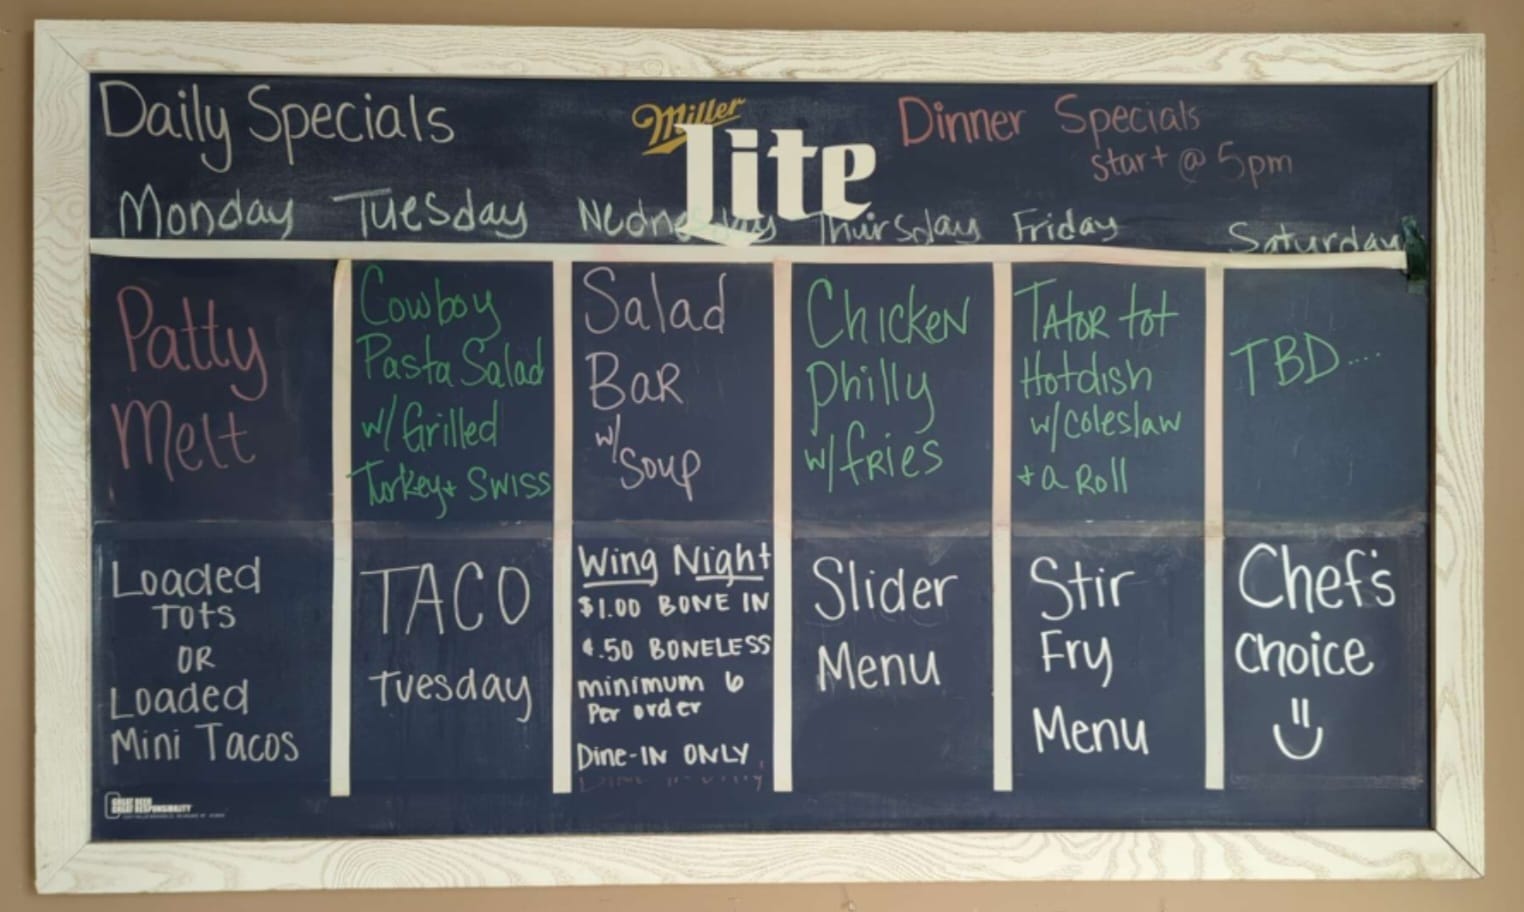 Daily Specials
Miller
Lite
Dinner Specials
start @ 5pm
Monday Tuesday Wednesday Thursday Friday Saturday
Patty
Melt
Cowboy
Pasta Salad
w/ Grilled
Turkey + Swiss
Salad
Bar
w/
Soup
Chicken
Philly
w/ fries
Tator tot
Hotdish
w/ coleslaw
+ a Roll
TBD....
Loaded
TOTS
OR
Loaded
Mini Tacos
TACO
Tuesday
Wing Night
$1.00 BONE IN
¢.50 BONELESS
minimum 6
Per order
Dine-IN ONLY
Slider
Menu
Stir
Fry
Menu
Chef's
Choice
GREAT BEER
GREAT RESPONSIBILITY